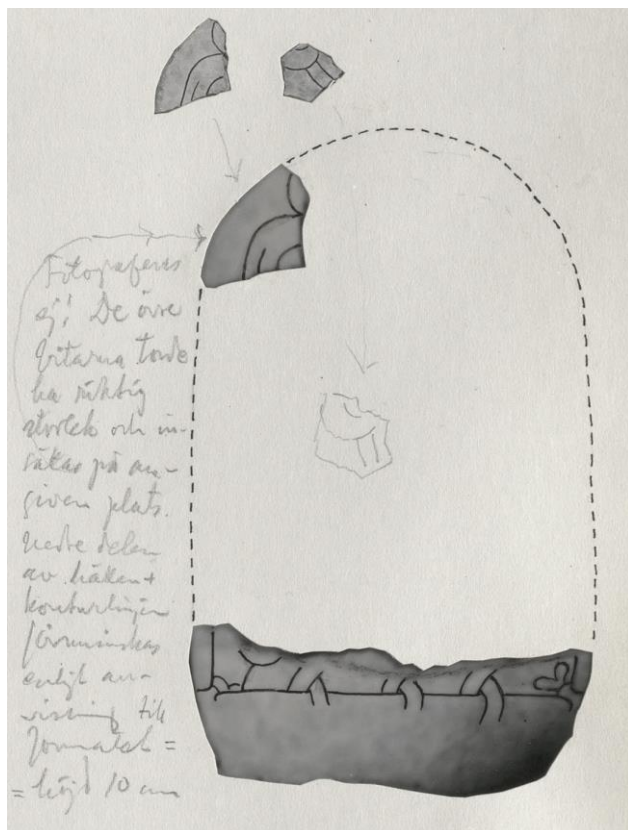 Fotograferas
ej! De övre
bitarna torde
ha riktig
storlek och in-
ritas på an-
given plats.
Nedre delen
av hällen +
konturlinjen
förminskas
enligt an-
visning till
formatet =
= höjd 10 cm